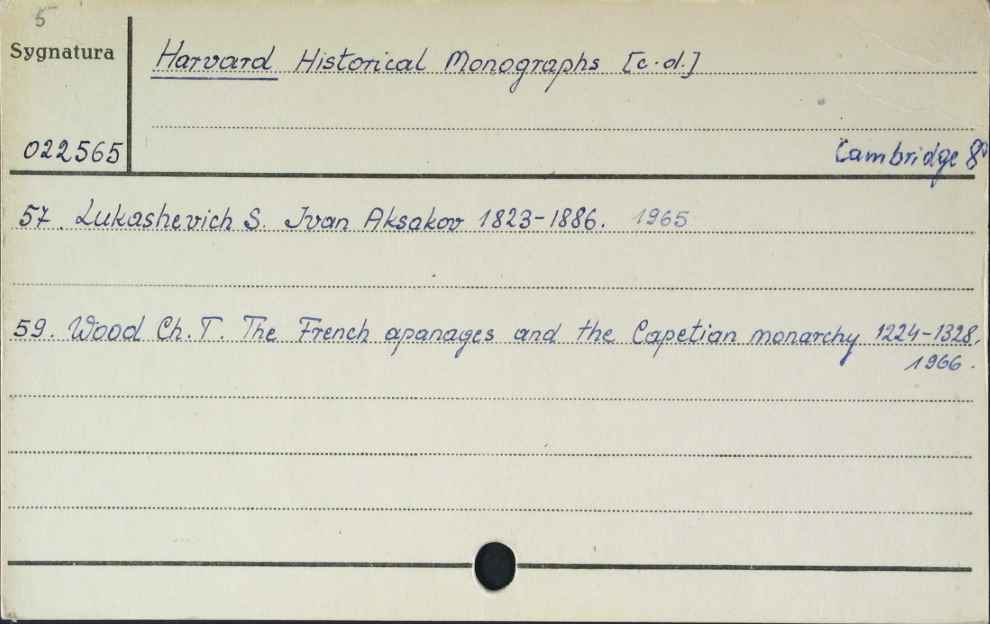 5
Sygnatura
Harvard Historical Monographs [c.d.]
022565
Cambridge 8°
57. Lukashevich S. Ivan Aksakov 1823-1886. 1965
59. Wood Ch. T. The French apanages and the Capetian monarchy 1224-1328.
1966.